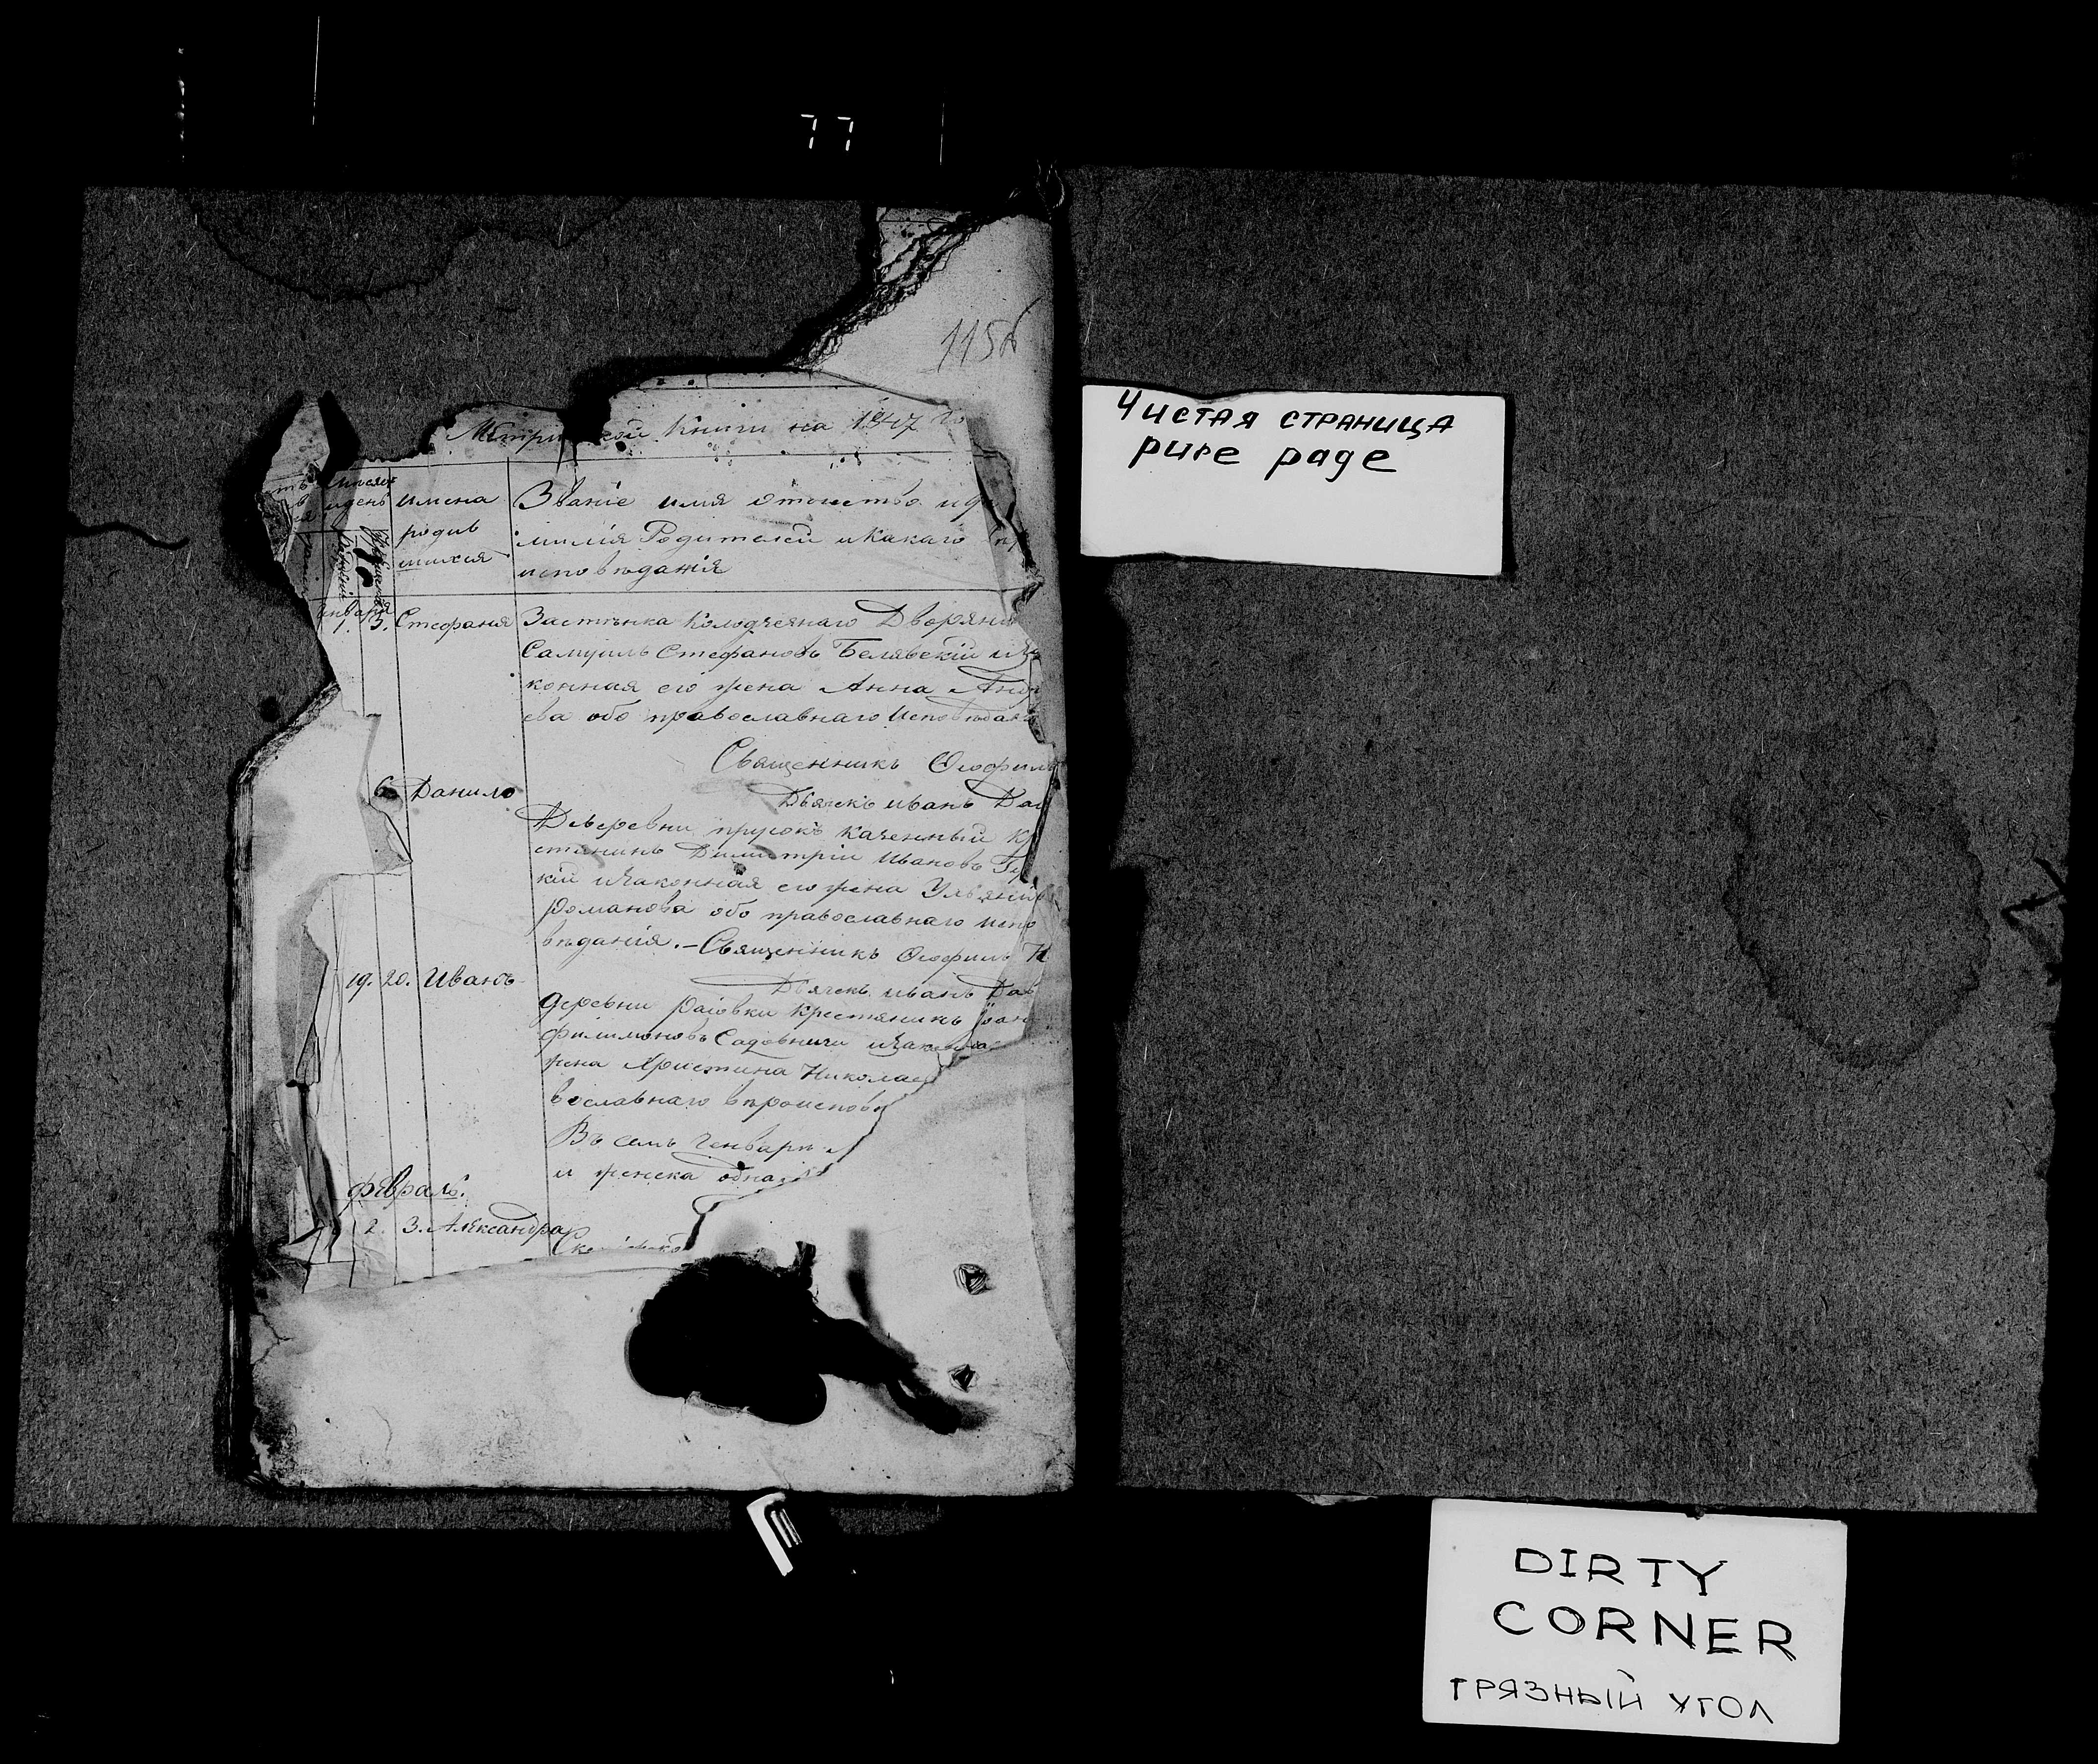 77
115
Метри кой Книги на 1847 го
мѣсяц
и день
имена
родив
шихся
Званіе имя Отчество и фа
милія Родителей и Какаго
исповѣданія
Января
1. 3. Стефанія
Застѣнка Колодчезнаго Дворянин
Самуилъ Стефановъ Белявскій и За
конная его жена Анна Андр
ева обо православнаго Исповѣдан
Священникъ Ѳеофилъ
Дьячекъ иванъ Дав
6. Данило
Деревни прусокъ казенный кр
стянинъ Димитрій Ивановъ
кій и Законная его жена Ульянія
Романова обо православнаго испо
вѣданія.– Священникъ Ѳеофилъ
Дьячекъ иванъ Дав
19. 20. Иванъ
Деревни Раіовки Крестянинъ Іоан
Филимоновъ Садовничи и Законная
жена Христина Николае
вославнаго вѣроисповѣ
Въ семъ Генварѣ
и женска одна
Февраль.
2. 3. Александра
Чистая страница
pure page
DIRTY
CORNER
ГРЯЗНЫЙ УГОЛ